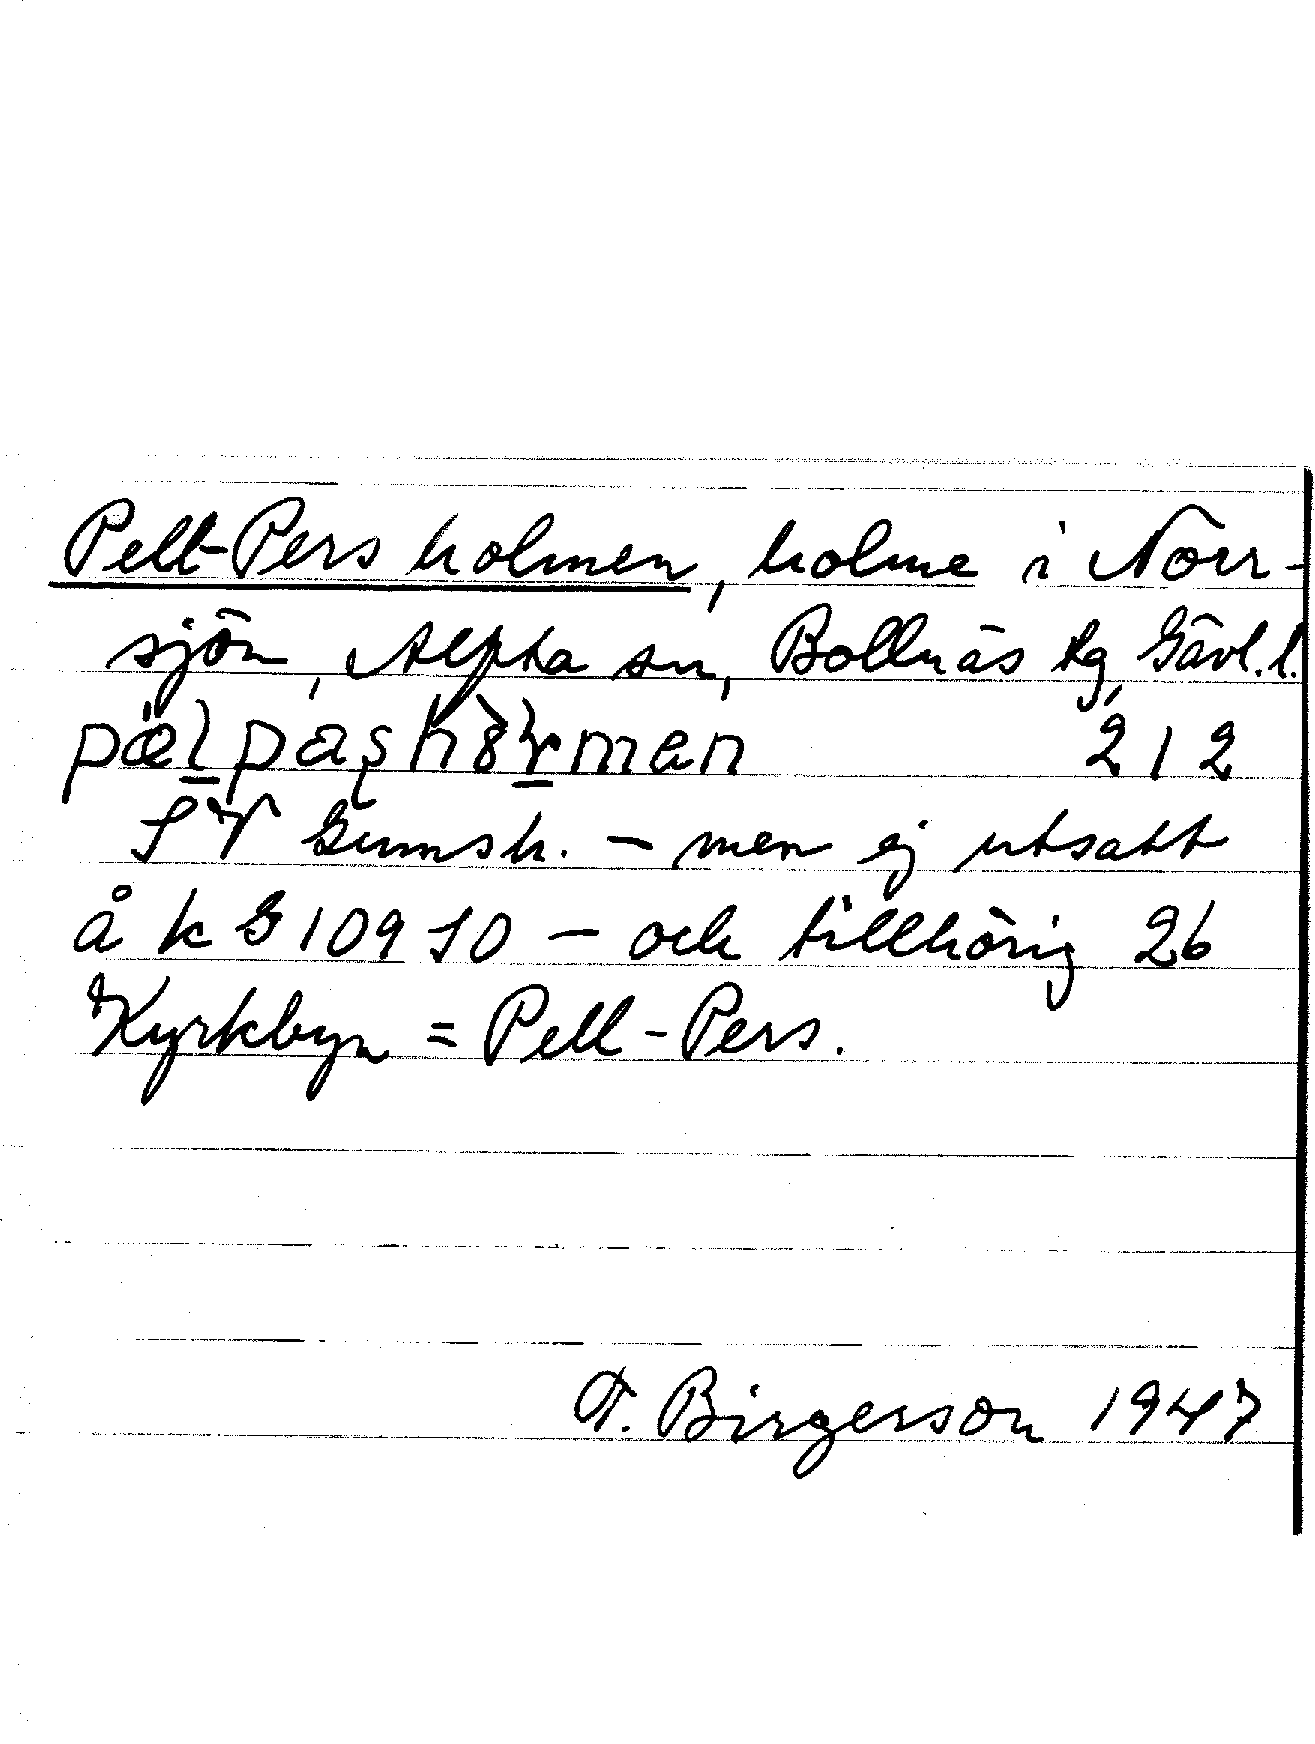 Pell-Pers holmen, holme i Norr-
sjön, Alfta sn, Bollnäs tg, Gävl. l.
212
SV Gumsh. – men ej utsatt
å k G 109 10 – och tillhörig 26
Kyrkbyn = Pell-Pers.
F. Birgerson 1947